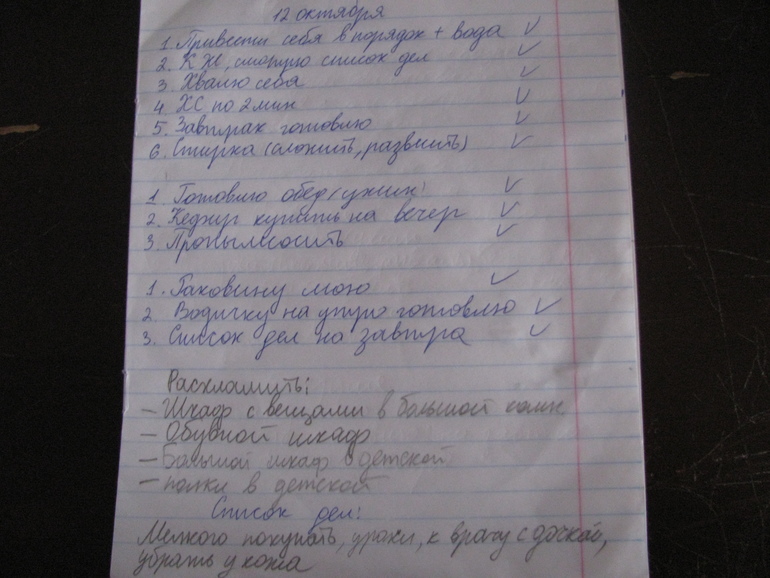 12 октября
1. Привести себя в порядок + вода
2. К Ж, смотрю список дел
3. Хвалю себя
4. ХС по 2 мин
5. Завтрак готовлю
6. Стирка (сложить, развесить)
1. Готовлю обед (ужин)
2. купить на вечер
3. Пропылесосить
1. Раковину мою
2. Водичку на утро готовлю
3. Список дел на завтра
Расхламить:
- Шкаф с вещами в большой комн.
- Обувной шкаф
- Большой шкаф в детской
- полки в детской
Список дел:
Мелкого покупать, уроки, к врачу с дочкой,
убрать у кота